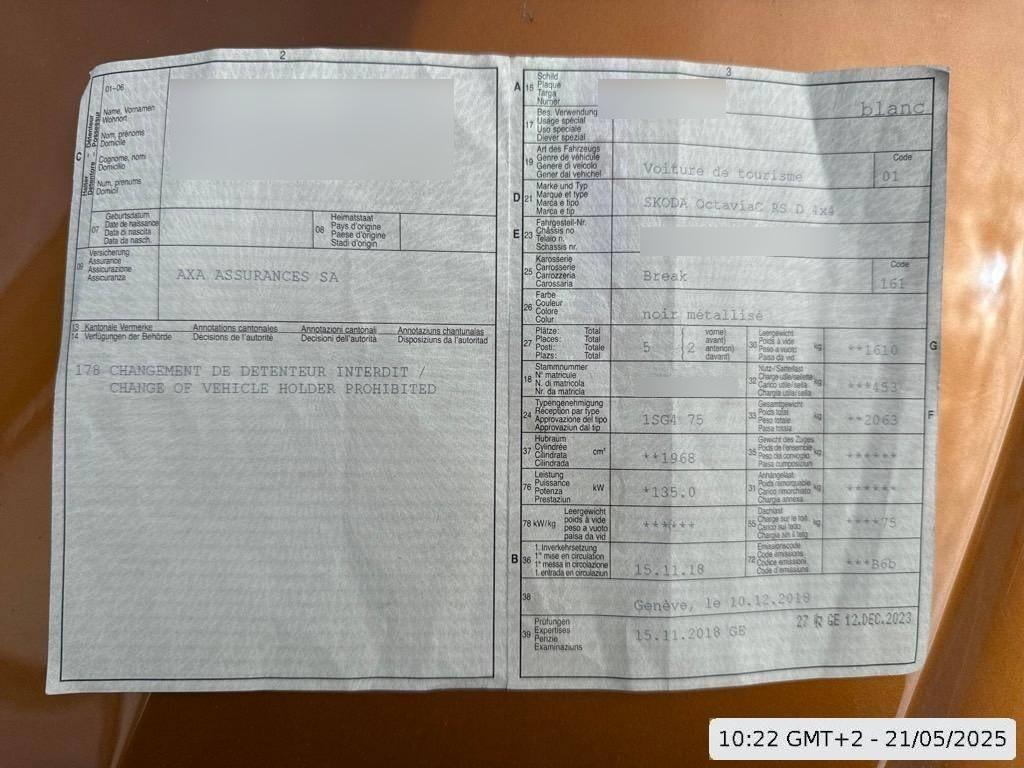 2
01-06
Halter - Détenteur
Detentore - Possessur
C
Name, Vornamen
Wohnort
Nom, prénoms
Domicile
Cognome, nomi
Domicilio
Num, prenums
Domicil
07
Geburtsdatum
Date de naissance
Data di nascita
Data da nasch.
08
Heimatstaat
Pays d'origine
Paese d'origine
Stadi d'origin
09
Versicherung
Assurance
Assicurazione
Assicuranza
AXA ASSURANCES SA
13 Kantonale Vermerke Annotations cantonales Annotazioni cantonali Annotaziuns chantunalas
14 Verfügungen der Behörde Décisions de l'autorité Decisioni dell'autorità Disposiziuns da l'autoritad
178 CHANGEMENT DE DETENTEUR INTERDIT /
CHANGE OF VEHICLE HOLDER PROHIBITED
3
A 15
Schild
Plaque
Targa
Numer
blanc
17
Bes. Verwendung
Usage spécial
Uso speciale
Diever spezial
19
Art des Fahrzeugs
Genre de véhicule
Genere di veicolo
Gener dal vehichel
Voiture de tourisme
Code
01
D 21
Marke und Typ
Marque et type
Marca e tipo
Marca e tip
SKODA OctaviaC RS D 4x4
E 23
Fahrgestell-Nr.
Châssis no
Telaio n.
Schassis nr.
25
Karosserie
Carrosserie
Carrozzeria
Carossaria
Break
Code
161
26
Farbe
Couleur
Colore
Colur
noir métallisé
27
Plätze: Total
Places: Total
Posti: Totale
Plazs: Total
5
2
vorne)
avant)
anteriori)
davant)
30
Leergewicht
Poids à vide
Peso a vuoto
Paisa da vid
kg
**1610
G
18
Stammnummer
N° matricule
N. di matricola
Nr. da matricla
32
Nutz-/Sattellast
Charge utile/sellette
Carico utile/sella
Chargia utila/sella
kg
***453
24
Typengenehmigung
Réception par type
Approvazione del tipo
Approvaziun dal tip
1SG4 75
33
Gesamtgewicht
Poids total
Peso totale
Paisa totala
kg
**2063
F
37
Hubraum
Cylindrée
Cilindrata
Cilindrada
cm³
**1968
35
Gewicht des Zuges
Poids de l'ensemble
Peso del convoglio
Paisa cumposiziun
kg
******
76
Leistung
Puissance
Potenza
Prestaziun
kW
*135.0
31
Anhängelast
Poids remorquable
Carico rimorchiato
Chargia annexa
kg
******
78 kW/kg
Leergewicht
poids à vide
peso a vuoto
paisa da vid
******
55
Dachlast
Charge sur le toit
Carico sul tetto
Chargia sin il tetg
kg
****75
B 36
1. Inverkehrsetzung
1re mise en circulation
1a messa in circolazione
1. entrada en circulaziun
15.11.18
72
Emissionscode
Code émissions
Codice emissioni
Code d'emissiuns
***B6b
38
Genève, le 10.12.2018
39
Prüfungen
Expertises
Perizie
Examinaziuns
15.11.2018 GE
GE 12.DEC.2023
10:22 GMT+2 - 21/05/2025